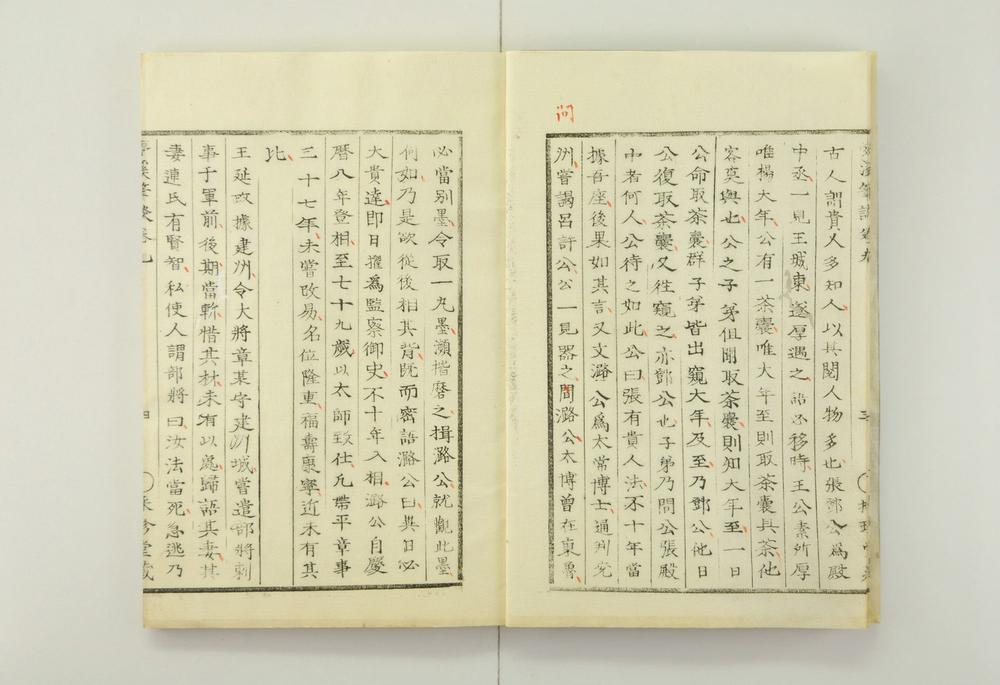 問
古人謂貴人多知人以其閱人物多也張鄧公為殿
中丞一見王城東遂厚遇之語必移時王公素所厚
唯楊大年公有一茶囊唯大年至則取茶囊具茶他
客莫與也公之子弟但聞取茶囊則知大年至一日
公命取茶囊群子弟皆出窺大年及至乃鄧公他日
公復取茶囊又往窺之亦鄧公也子弟乃問公張殿
中者何人公待之如此公曰張有貴人法不十年當
據吾座後果如其言又文潞公爲太常博士通判兖
州嘗謁呂許公公一見器之周潞公太博曾在東魯
必當別墨令取一丸墨瀕揩磨之揖潞公就觀此墨
何如乃是欲從後相其背既而密語潞公曰異日必
大貴達即日擢爲監察御史不十年入相潞公自慶
曆八年登相至七十九歲以太師致仕凡帶平章事
三十七年未嘗改易名位隆重福壽康寧近未有其
比
王延政據建州令大將章某守建州城嘗遣部將刺
事于軍前後期當斬惜其材未有以處歸語其妻其
妻連氏有賢智私使人謂部將曰汝法當死急逃乃
夢溪筆談卷九　四　采珍堂藏